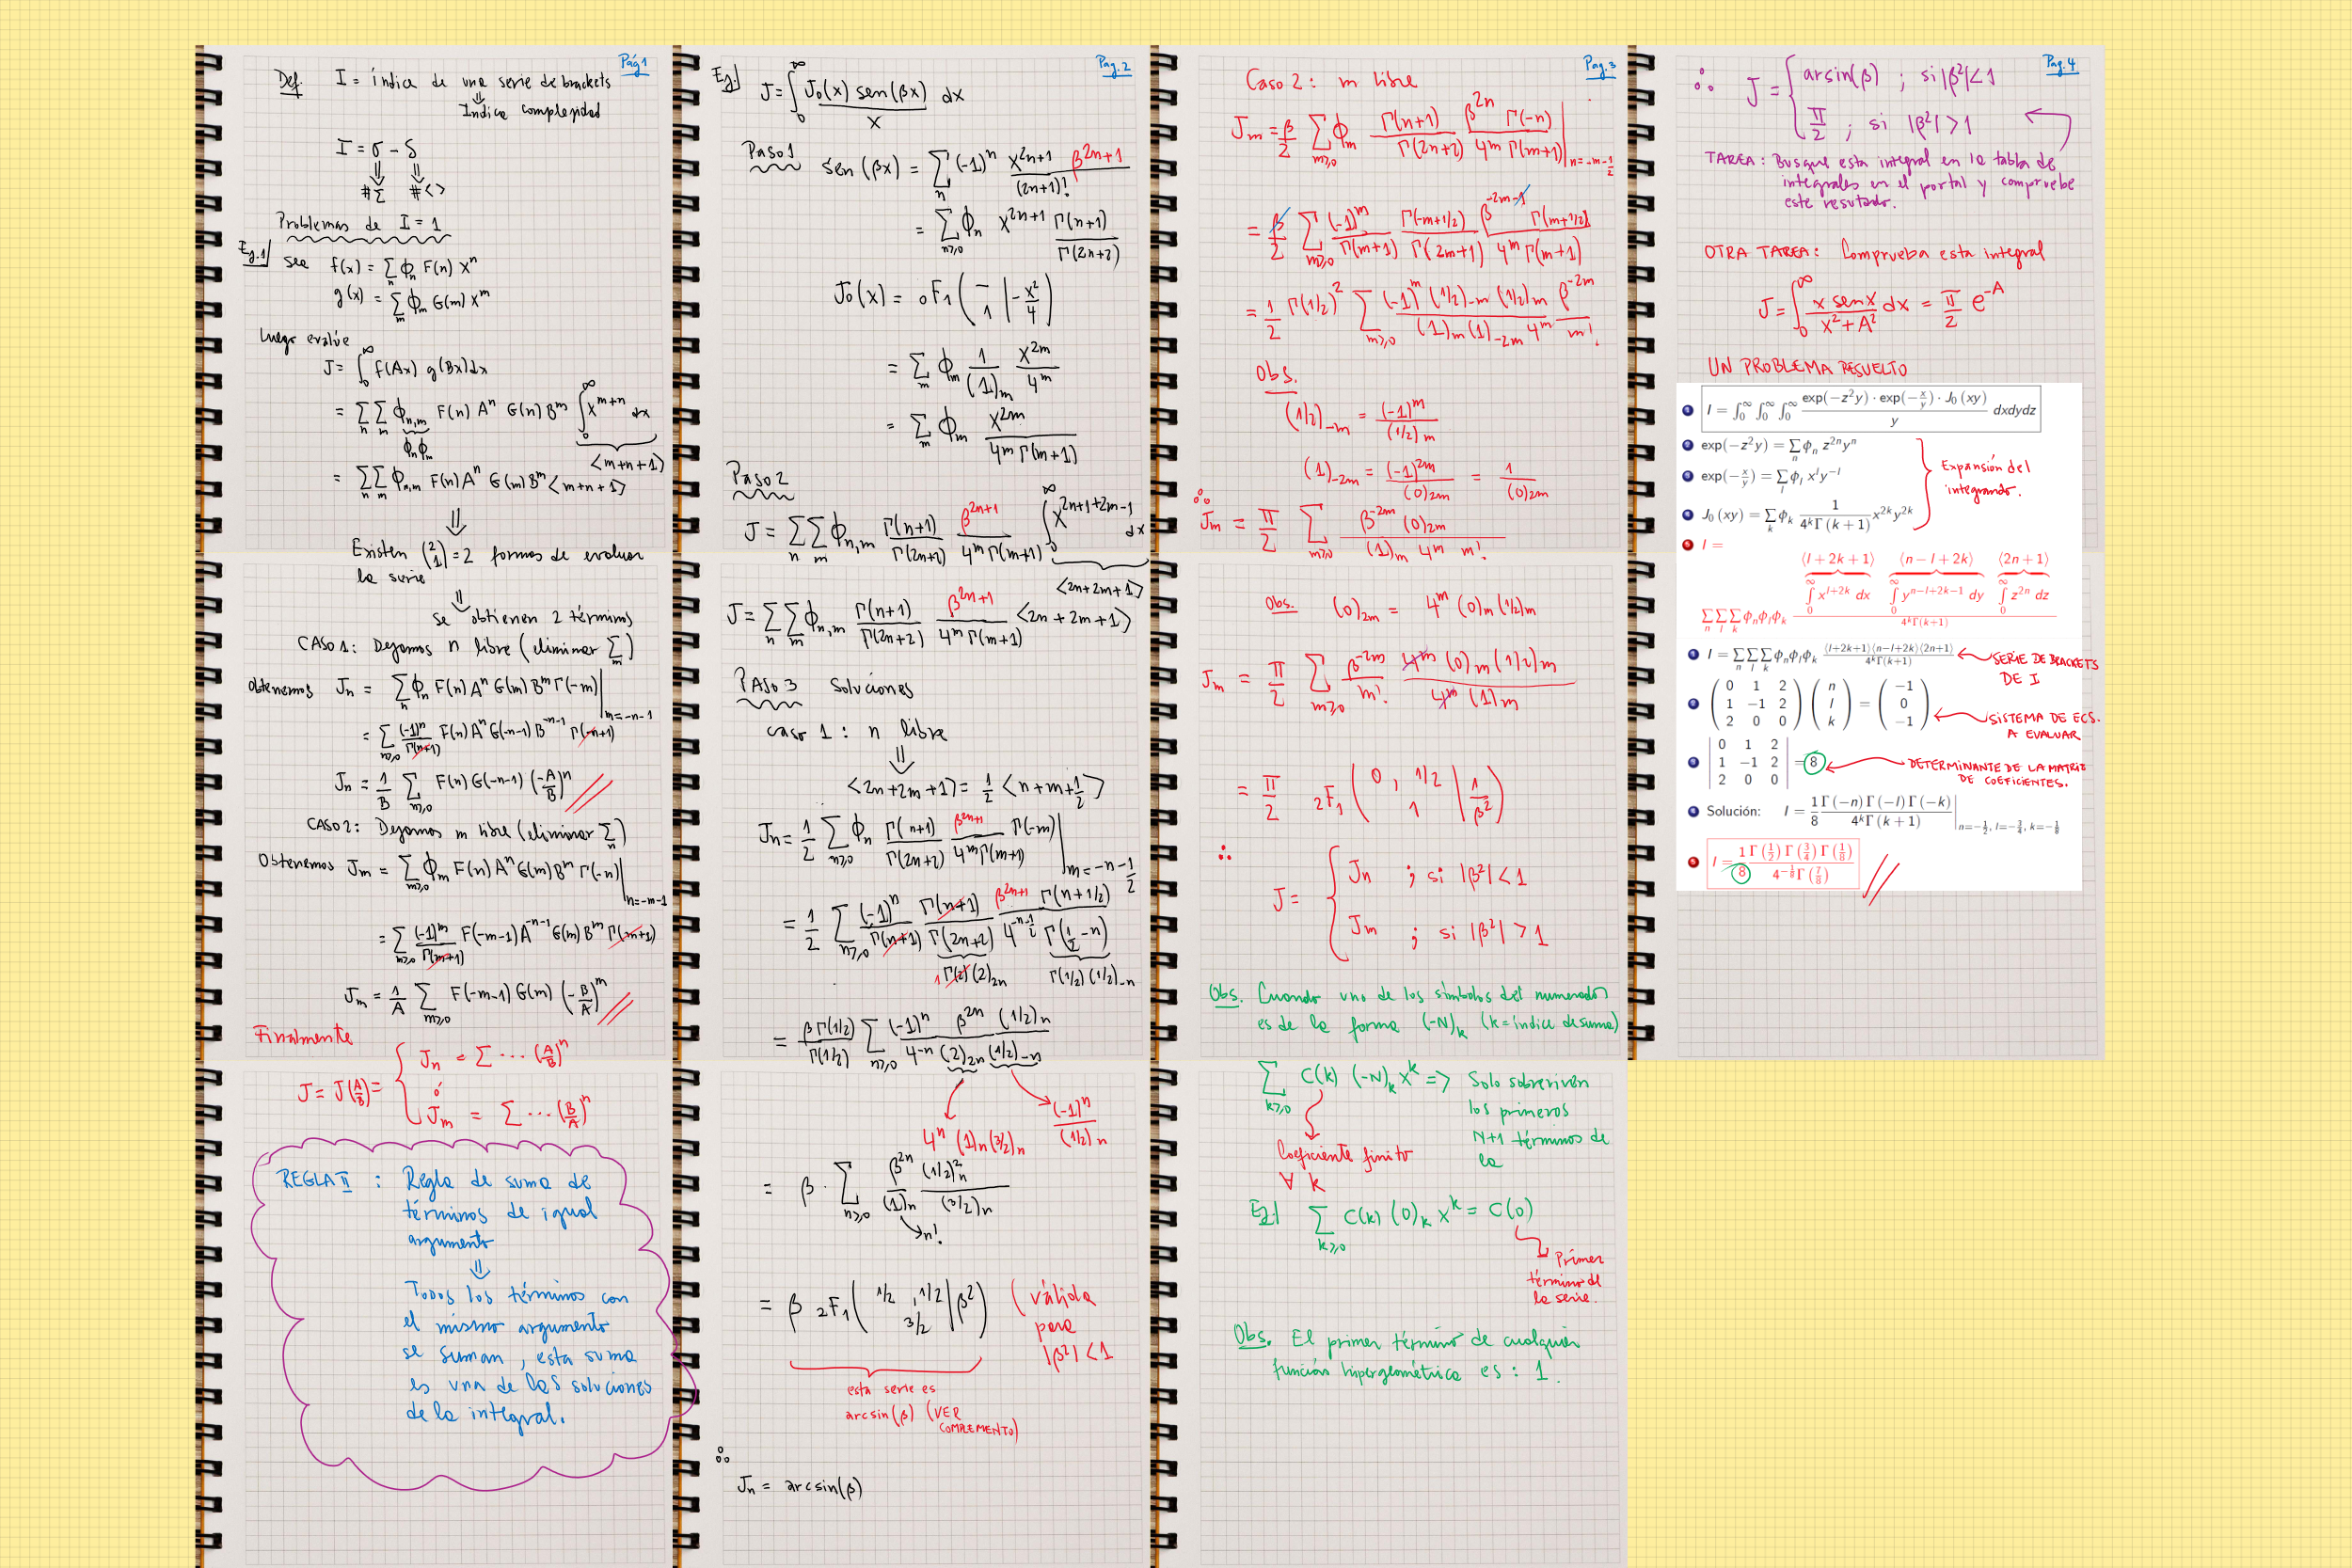 Pág 1
Def. I = índice de una serie de brackets
⇓
Indica complejidad
I = σ - δ
⇓ ⇓
#Σ #<>
Problemas de I = 1
Eg.1 sea f(x) = Σ_n ϕ_n F(n) x^n
g(x) = Σ_m ϕ_m G(m) x^m
Luego evalúe
J = ∫_0^∞ f(Ax) g(Bx) dx
= Σ_n Σ_m ϕ_{n,m} F(n) A^n G(n) B^m ∫_0^∞ x^{m+n} dx
ϕ_n ϕ_m <m+n+1>
= Σ_n Σ_m ϕ_{n,m} F(n) A^n G(m) B^m <m+n+1>
⇓
Existen (2 1) = 2 formas de evaluar
la serie
⇓
se obtienen 2 términos
CASO 1: Dejamos n libre (eliminar Σ_m)
Obtenemos J_n = Σ_n ϕ_n F(n) A^n G(m) B^m Γ(-m) |_{m=-n-1}
= Σ_{n≥0} (-1)^n / Γ(n+1) F(n) A^n G(-n-1) B^{-n-1} Γ(n+1)
J_n = 1/B Σ_{n≥0} F(n) G(-n-1) (-A/B)^n //
CASO 2: Dejamos m libre (eliminar Σ_n)
Obtenemos J_m = Σ_{m≥0} ϕ_m F(n) A^n G(m) B^m Γ(-n) |_{n=-m-1}
= Σ_{m≥0} (-1)^m / Γ(m+1) F(-m-1) A^{-m-1} G(m) B^m Γ(m+1)
J_m = 1/A Σ_{m≥0} F(-m-1) G(m) (-B/A)^m //
Finalmente
J = J(A/B) = { J_n = Σ ... (A/B)^n
ó
J_m = Σ ... (B/A)^n
REGLA II : Regla de suma de
términos de igual
argumento
⇓
Todos los términos con
el mismo argumento
se suman, esta suma
es una de las soluciones
de la integral.
Pag. 2
Eg.) J = ∫_0^∞ J_0(x) sen(βx) / x dx
Paso 1 sen(βx) = Σ_n (-1)^n x^{2n+1} β^{2n+1} / (2n+1)!
= Σ_{n≥0} ϕ_n x^{2n+1} Γ(n+1) / Γ(2n+2)
J_0(x) = 0F1( - 1 | -x²/4 )
= Σ_m ϕ_m 1/(1)_m x^{2m}/4^m
= Σ_m ϕ_m x^{2m} / 4^m Γ(m+1)
Paso 2
J = Σ_n Σ_m ϕ_{n,m} Γ(n+1)/Γ(2n+2) β^{2n+1} / 4^m Γ(m+1) ∫_0^∞ x^{2n+1+2m-1} dx
<2n+2m+1>
J = Σ_n Σ_m ϕ_{n,m} Γ(n+1)/Γ(2n+2) β^{2n+1} / 4^m Γ(m+1) <2n+2m+1>
PASO 3 Soluciones
caso 1 : n libre
⇓
<2n+2m+1> = 1/2 <n+m+1/2>
J_n = 1/2 Σ_{n≥0} ϕ_n Γ(n+1)/Γ(2n+2) β^{2n+1} / 4^m Γ(m+1) Γ(-m) |_{m=-n-1/2}
= 1/2 Σ_{n≥0} (-1)^n / Γ(n+1) Γ(n+1)/Γ(2n+2) β^{2n+1} Γ(n+1/2) / 4^{-n-1/2} Γ(1/2-n)
1 Γ(2)(2)_{2n} Γ(1/2)(1/2)_{-n}
= β Γ(1/2) / Γ(1/2) Σ_{n≥0} (-1)^n β^{2n} (1/2)_n / 4^{-n} (2)_{2n} (1/2)_{-n}
4^n (1)_n (3/2)_n (-1)^n / (1/2)_n
= β · Σ_{n≥0} β^{2n} (1/2)_n^2 / (1)_n (3/2)_n
n!
= β 2F1( 1/2 , 1/2 3/2 | β² ) (válida
para
|β²| < 1
esta serie es
arcsin(β) (VER
COMPLEMENTO)
∴
J_n = arcsin(β)
Pag. 3
Caso 2 : m libre
J_m = β/2 Σ_{m≥0} ϕ_m Γ(n+1)/Γ(2n+2) β^{2n} Γ(-n) / 4^m Γ(m+1) |_{n=-m-1/2}
= β/2 Σ_{m≥0} (-1)^m / Γ(m+1) Γ(-m+1/2)/Γ(2m+1) β^{-2m-1} Γ(m+1/2) / 4^m Γ(m+1)
= 1/2 Γ(1/2)² Σ_{m≥0} (-1)^m (1/2)_{-m} (1/2)_m / (1)_m (1)_{-2m} 4^m β^{-2m} / m!
Obs.
(1/2)_{-m} = (-1)^m / (1/2)_m
(1)_{-2m} = (-1)^{2m} / (0)_{2m} = 1 / (0)_{2m}
∴ J_m = π/2 Σ_{m≥0} β^{-2m} (0)_{2m} / (1)_m 4^m m!
Obs. (0)_{2m} = 4^m (0)_m (1/2)_m
J_m = π/2 Σ_{m≥0} β^{-2m} / m! 4^m (0)_m (1/2)_m / 4^m (1)_m
= π/2 2F1( 0 , 1/2 1 | 1/β² )
∴
J = { J_n ; si |β²| < 1
J_m ; si |β²| > 1
Obs. Cuando uno de los símbolos del numerador
es de la forma (-N)_k (k = índice de suma)
Σ_{k≥0} C(k) (-N)_k x^k => Solo sobreviven
los primeros
N+1 términos de
la
Coeficiente finito
∀ k
Eg.| Σ_{k≥0} C(k) (0)_k x^k = C(0)
Primer
término de
la serie.
Obs. El primer término de cualquier
función hipergeométrica es : 1.
Pag. 4
∴ J = { arsin(β) ; si |β²| < 1
π/2 ; si |β²| > 1
TAREA: Busque esta integral en la tabla de
integrales en el portal y compruebe
este resutado.
OTRA TAREA: Comprueba esta integral
J = ∫_0^∞ x sen x / x² + A² dx = π/2 e^{-A}
UN PROBLEMA RESUELTO
1 I = ∫_0^∞ ∫_0^∞ ∫_0^∞ exp(-z²y) · exp(-x/y) · J_0(xy) / y dxdydz
2 exp(-z²y) = Σ_n ϕ_n z^{2n} y^n
3 exp(-x/y) = Σ_l ϕ_l x^l y^{-l}
4 J_0(xy) = Σ_k ϕ_k 1 / 4^k Γ(k+1) x^{2k} y^{2k}
Expansión del
integrando.
5 I =
⟨l+2k+1⟩ ⟨n-l+2k⟩ ⟨2n+1⟩
∫_0^∞ x^{l+2k} dx ∫_0^∞ y^{n-l+2k-1} dy ∫_0^∞ z^{2n} dz
Σ_n Σ_l Σ_k ϕ_n ϕ_l ϕ_k / 4^k Γ(k+1)
1 I = Σ_n Σ_l Σ_k ϕ_n ϕ_l ϕ_k ⟨l+2k+1⟩⟨n-l+2k⟩⟨2n+1⟩ / 4^k Γ(k+1) SERIE DE BRACKETS
DE I
2 (0 1 2 / 1 -1 2 / 2 0 0) (n / l / k) = (-1 / 0 / -1) SISTEMA DE ECS.
A EVALUAR
3 |0 1 2 / 1 -1 2 / 2 0 0| = 8 DETERMINANTE DE LA MATRIZ
DE COEFICIENTES.
4 Solución: I = 1/8 Γ(-n) Γ(-l) Γ(-k) / 4^k Γ(k+1) |_{n=-1/2, l=-3/4, k=-1/8}
5 I = 1/8 Γ(1/2) Γ(3/4) Γ(1/8) / 4^{-1/8} Γ(7/8) //